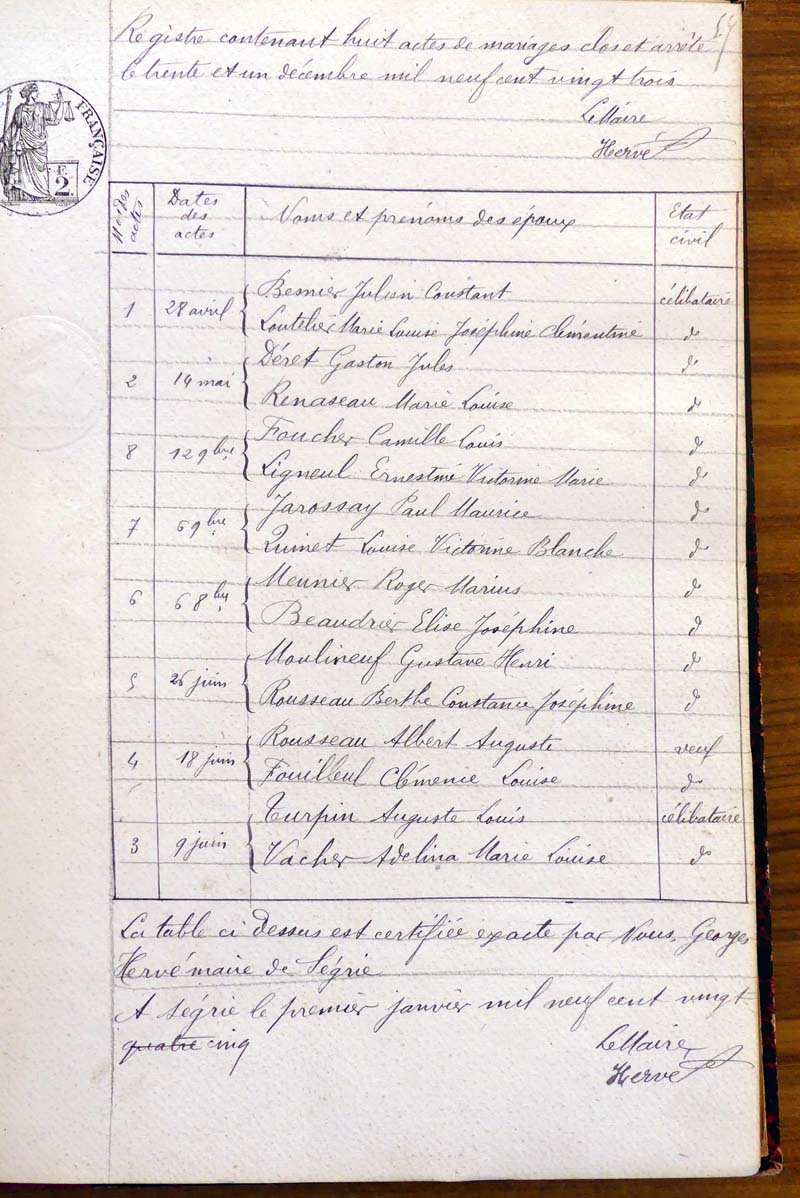 57
Registre contenant huit actes de mariages clos et arrêté
le trente et un décembre mil neuf cent vingt trois
Le Maire
Hervé
FRANÇAISE
F.
2.
Nos des actes
Dates des actes
Noms et prénoms des époux
Etat civil
1 28 avril Besnier Julien Constant célibataire
Loutelier Marie Louise Joséphine Clémentine do
2 14 mai Déret Gaston Jules do
Renaseau Marie Louise do
8 12 9bre Foucher Camille Louis do
Ligneul Ernestine Victorine Marie do
7 6 9bre Jarossay Paul Maurice do
Quinet Louise Victorine Blanche do
6 6 8bre Meunier Roger Marius do
Beaudrier Elise Joséphine do
5 26 juin Moulineuf Gustave Henri do
Rousseau Berthe Constance Joséphine do
4 18 juin Rousseau Albert Auguste veuf
Fouilleul Clémence Louise do
3 9 juin Turpin Auguste Louis célibataire
Vacher Adelina Marie Louise do
La table ci dessus est certifiée exacte par Nous, Georges
Hervé maire de Ségrie
A ségrie le premier janvier mil neuf cent vingt
quatre cinq
Le Maire,
Hervé